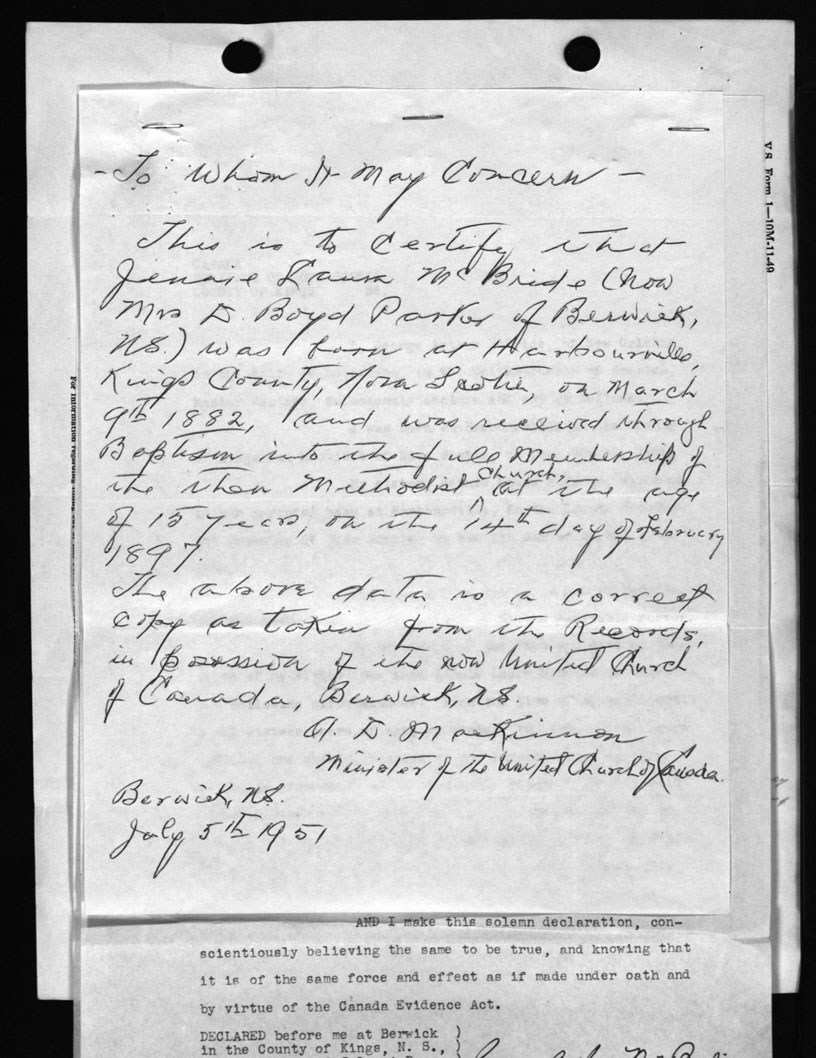 - To Whom It May Concern -
This is to Certify that
Jennie Laura McBride (Now
Mrs D. Boyd Parker of Berwick,
N.S.) was born at Harbourville,
Kings County, Nova Scotia, on March
9th 1882, and was received through
Baptism into the full Membership of
the then Methodist Church, at the age
of 15 years, on the 14th day of February
1897.
The above data is a correct
copy as taken from the Records,
in possession of the now United Church
of Canada, Berwick, N.S.
A. D. MacKinnon
Minister of the United Church of Canada.
Berwick, N.S.
July 5th 1951
V.S. Form 1—10M-11-49
AND I make this solemn declaration, con-
scientiously believing the same to be true, and knowing that
it is of the same force and effect as if made under oath and
by virtue of the Canada Evidence Act.
DECLARED before me at Berwick )
in the County of Kings, N. S., )